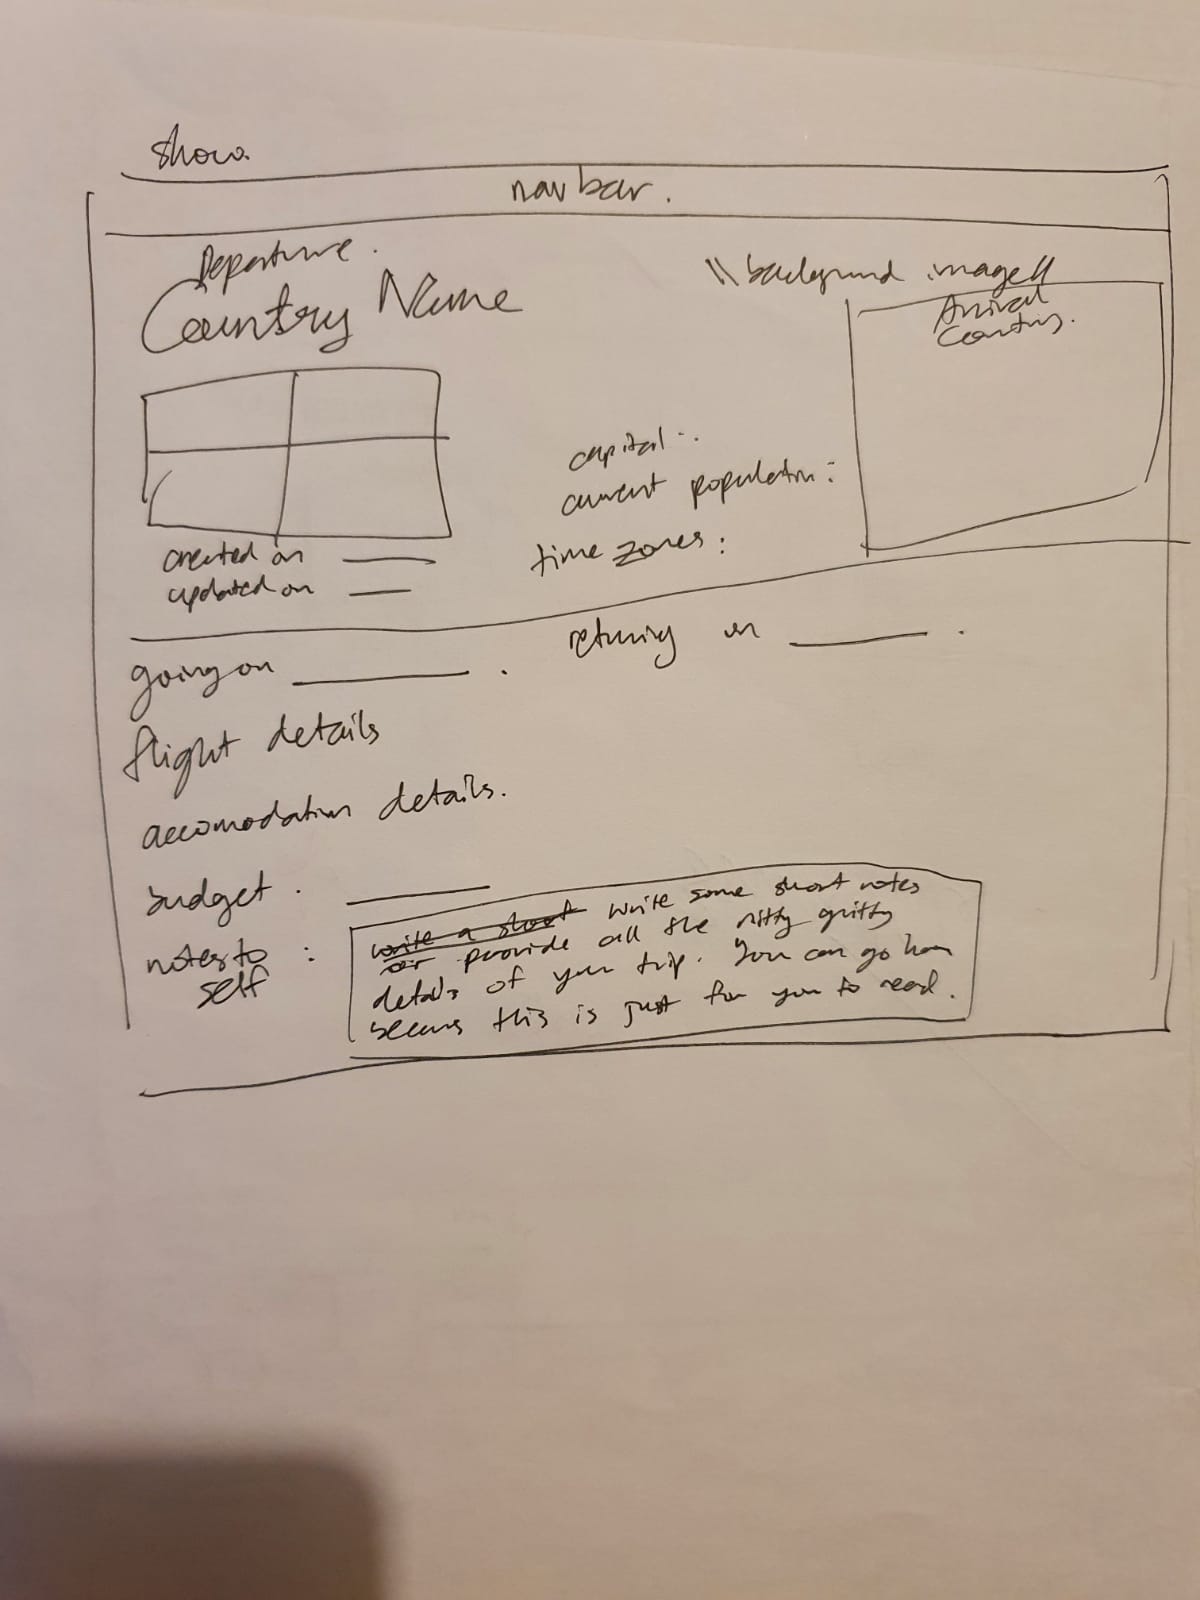 show.
nav bar.
Departure.
Country Name
\\ background image \\
Arrival
Country.
capital :
current population :
time zones :
created on
updated on
going on .
returning on .
flight details
accomodation details.
budget .
notes to :
self
write a short write some short notes
or provide all the nitty gritty
details of your trip. You can go ham
because this is just for you to read.